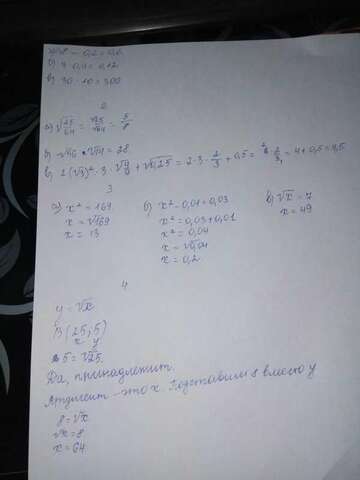 а) 0,8 - 0,2 = 0,6
б) 3 · 0,4 = 0,12
в) 30 · 10 = 300
2
а) √25/64 = √25/√64 = 5/8
в) 2(√3)² · 3 · √4/9 + √0,25 = 2·3·2/3 + 0,5 = 4 + 0,5 = 4,5
3
а) x² = 169
x = √169
x = 13
б) x² - 0,01 = 0,03
x² = 0,03 + 0,01
x² = 0,04
x = √0,04
x = 0,2
в) √x = 7
x = 49
4
y = √x
B (25; 5)
x y
5 = √25
Да, принадлежит.
Аргумент - это x. Подставим 8 вместо y
8 = √x
√x = 8
x = 64